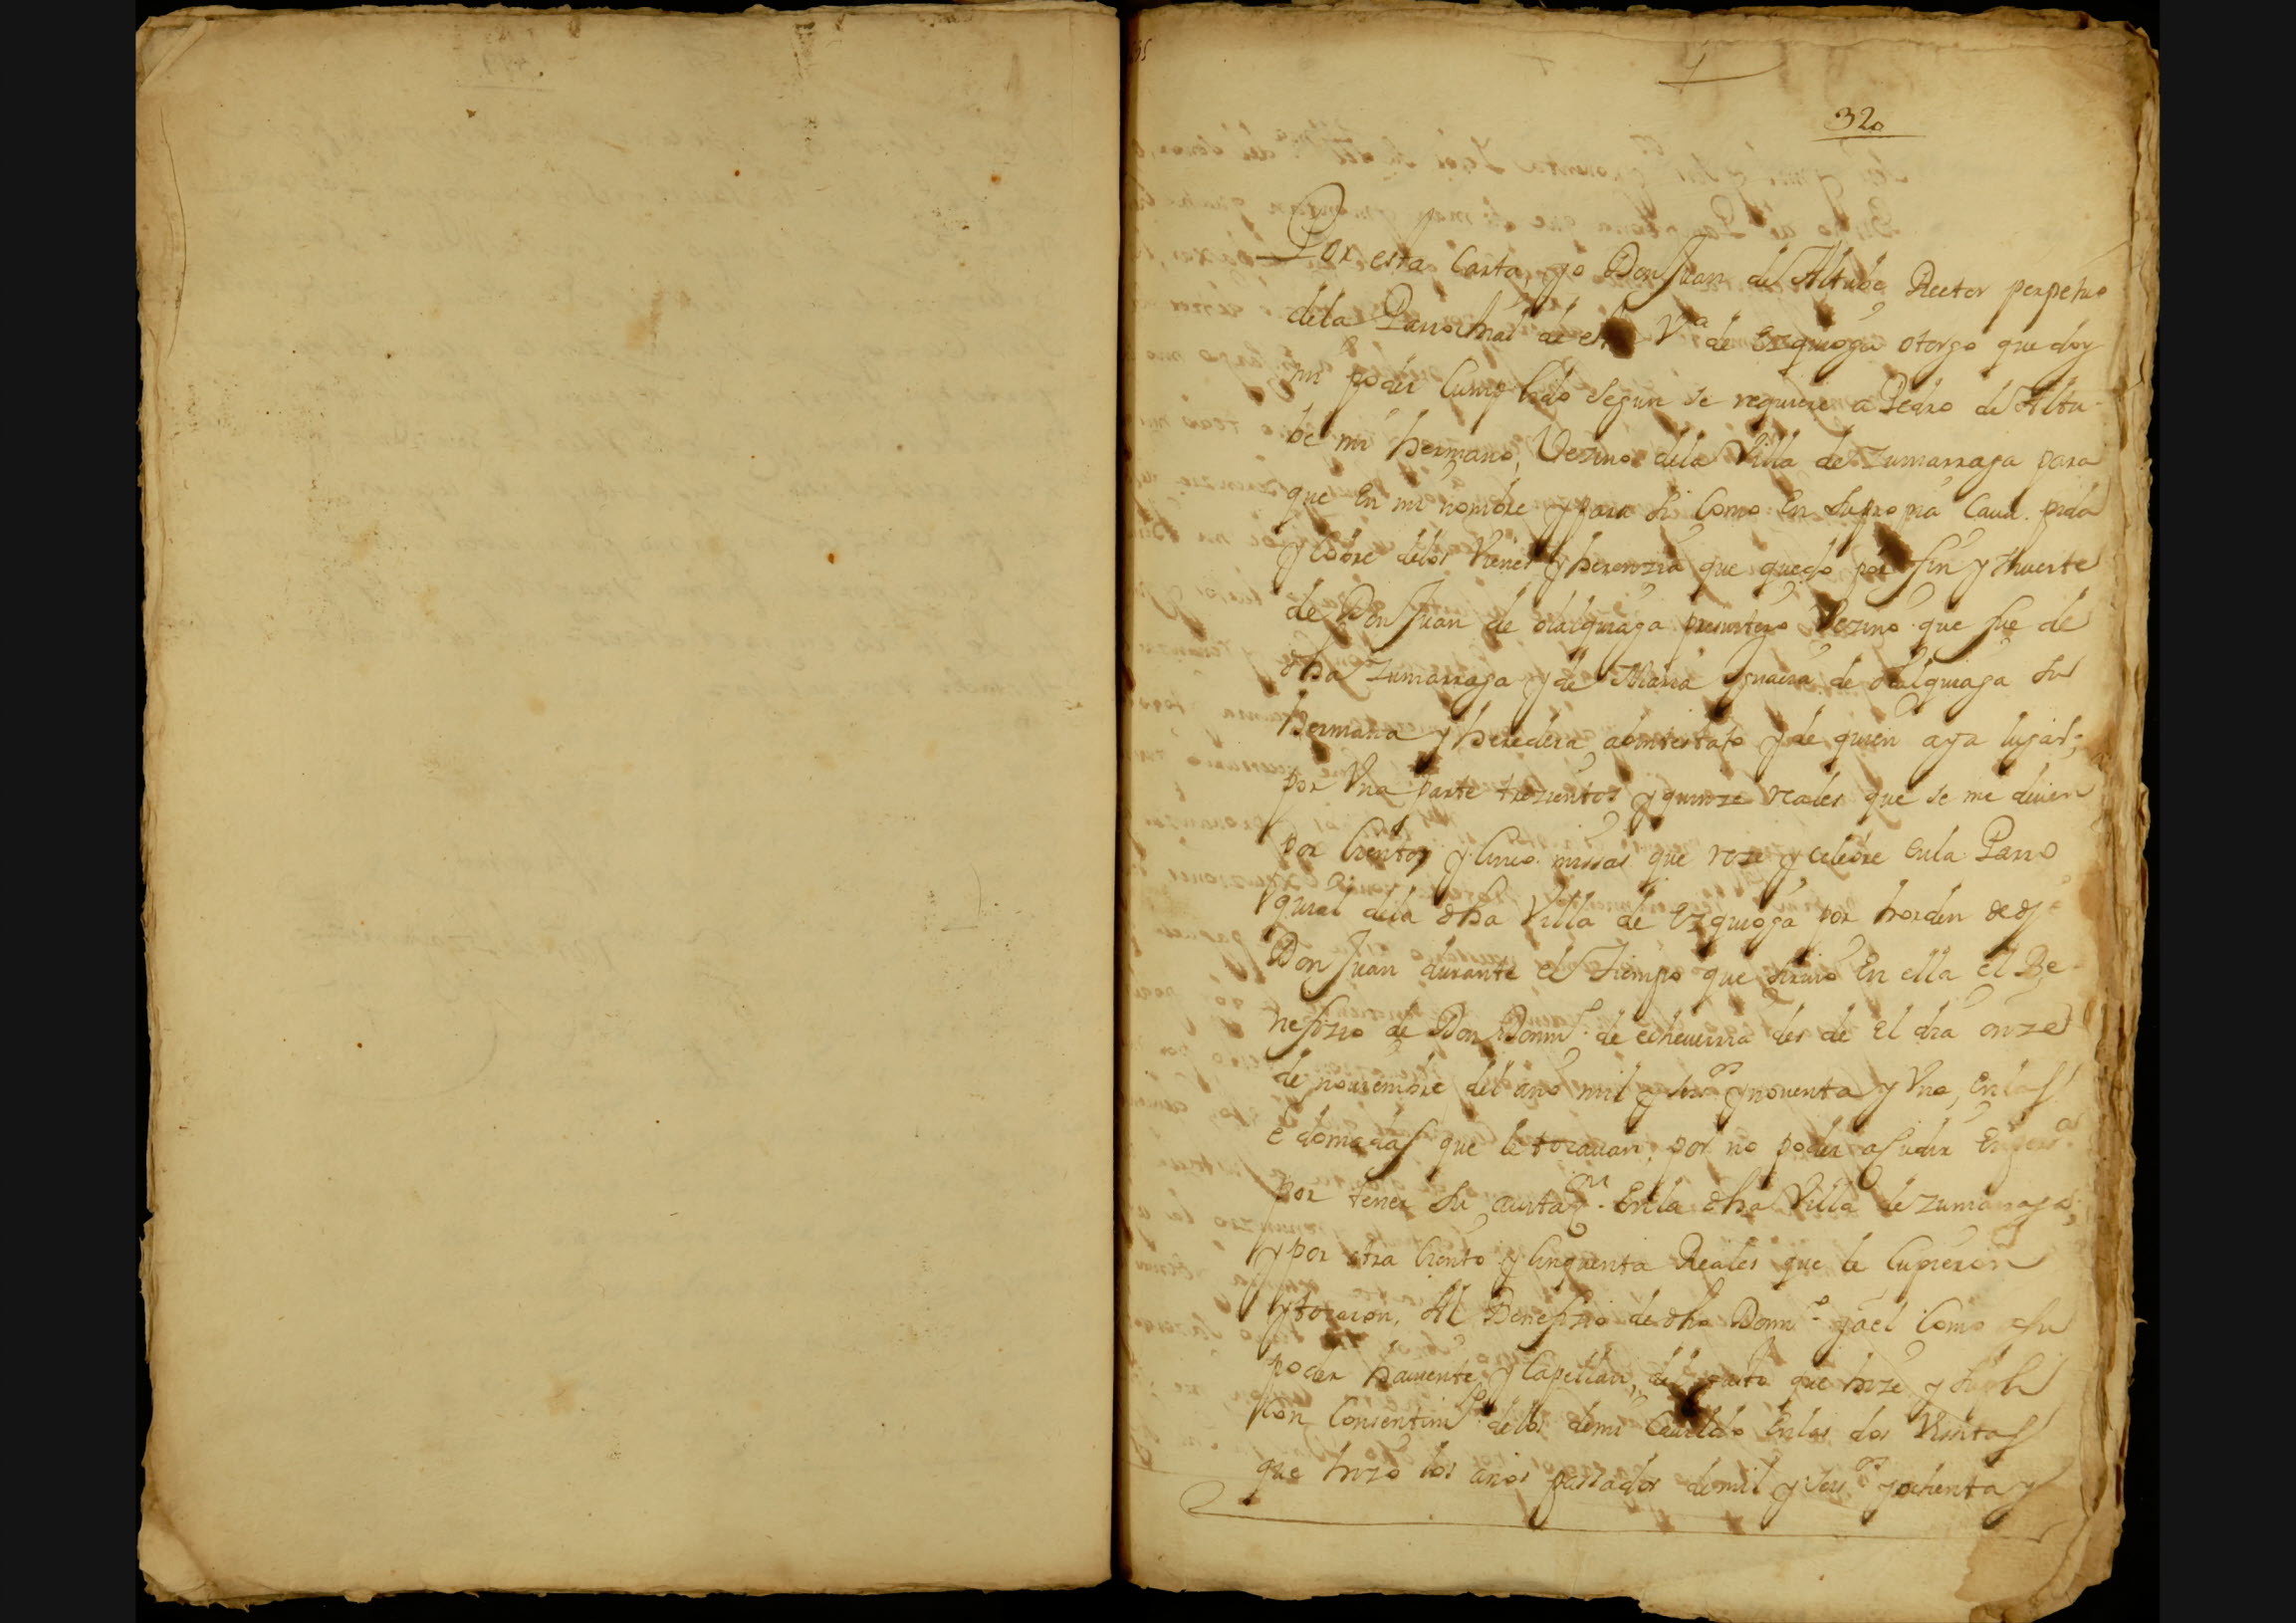 32
Por esta Carta, yo Don Juan de Altube Rector perpetuo
dela Parrochial de esta Vª de Ezquioga otorgo que doy
mi poder Cumplido segun se requiere a Pedro de Altu-
be mi hermano, Vezino dela Villa de Zumarraga para
que En mi nombre y para si Como En su propia Caussa pida
y Cobre delos Vienes y herenzia que quedo por fin y Muerte
de Don Juan de olalquiaga presuitero Vezino que fue de
dha Zumarraga y de Maria Ygnacia de olalquiaga su
hermana y heredera abintestato y de quien aya lugar;
por Vna parte trezientos y quinze reales que se me deuen
por Ciento y Cinco missas que reze y celebre enla Parro
quial dela dha Villa de Ezquioga por horden de dho
Don Juan durante el Tiempo que siruio En ella el Be-
nefizio de Don Domº de echeuerria des de El dia onze
de nouiembre del año mil y seisºˢ y nouenta y Vno, En las
edomadas que le tocauan, por no poder acudir En persª
por tener su auitaçºⁿ. En la dha Villa de Zumarraga;
y por otra Ciento y Cinquenta Reales que le Cupieron
y tocaron, Al Benefizio de dho Domº y a el Como su
poder hauiente y Capellan, del gasto que hize y supli
Con Consentimᵗº delos demi Cauildo En las dos Visitas
que hizo los años passados de mil y seisºˢ y ochenta y